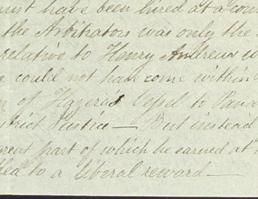 must have been hired at a cou
the Arbitrators was only the
relative to Henry Andrews w
could not have come within
of Vessel to Pana
strict Justice — But instead
great part of which he earned at
to a liberal reward —